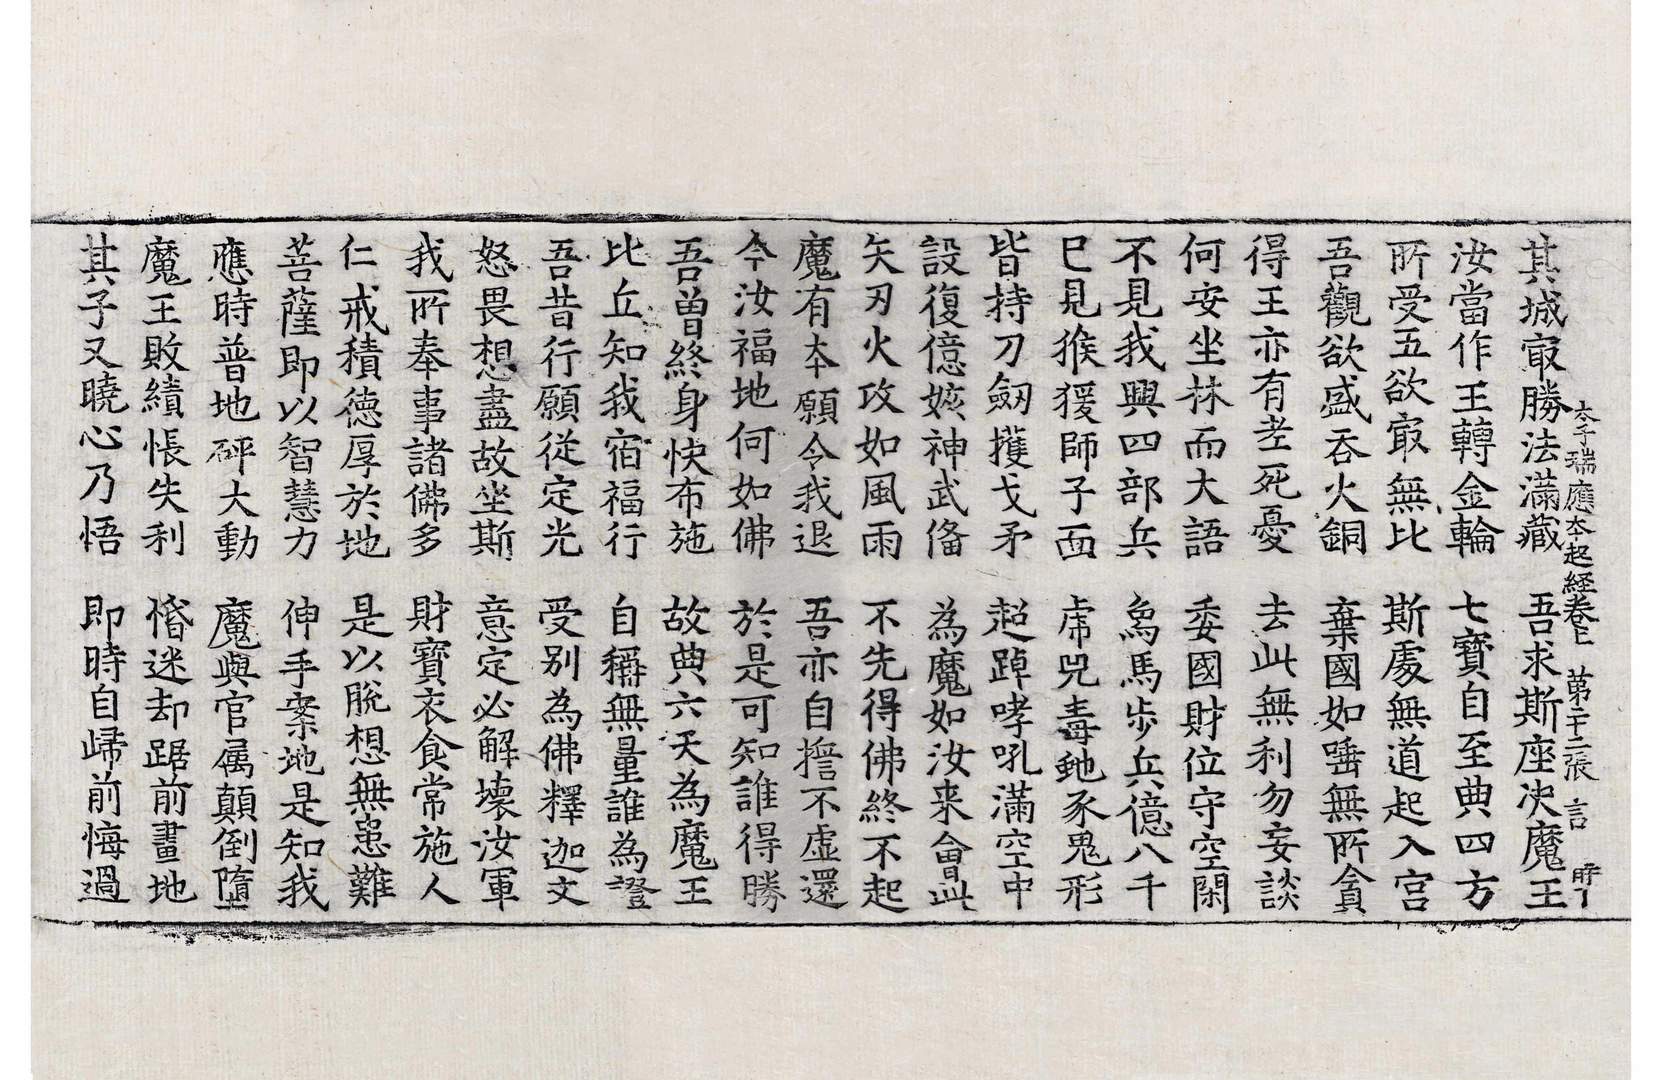 太子瑞應本起經卷上　第二十二張　言
其城㝡勝法滿藏　吾求斯座決魔王
汝當作王轉金輪　七寶自至典四方
所受五欲㝡無比　斯處無道起入宫
吾觀欲盛吞火銅　棄國如唾無所貪
得王亦有老死憂　去此無利勿妄談
何安坐林而大語　委國財位守空閑
不見我興四部兵　象馬步兵億八千
已見猴猨師子面　虎兕毒虵豕鬼形
皆持刀劒擭戈矛　超踔哮吼滿空中
設復億姟神武俻　為魔如汝来會此
矢刃火攻如風雨　不先得佛終不起
魔有本願令我退　吾亦自擔不虚還
今汝福地何如佛　於是可知誰得勝
吾曽終身快布施　故典六天為魔王
比丘知我宿福行　自稱無量誰為證
吾昔行願從定光　受别為佛釋迦文
怒畏想盡故坐斯　意定必解壞汝軍
我所奉事諸佛多　財寶衣食常施人
仁戒積德厚於地　是以脫想無患難
菩薩即以智慧力　伸手案地是知我
應時普地砰大動　魔與官属顛倒墮
魔王敗績悵失利　惛迷却踞前畫地
其子又曉心乃悟　即時自歸前悔過